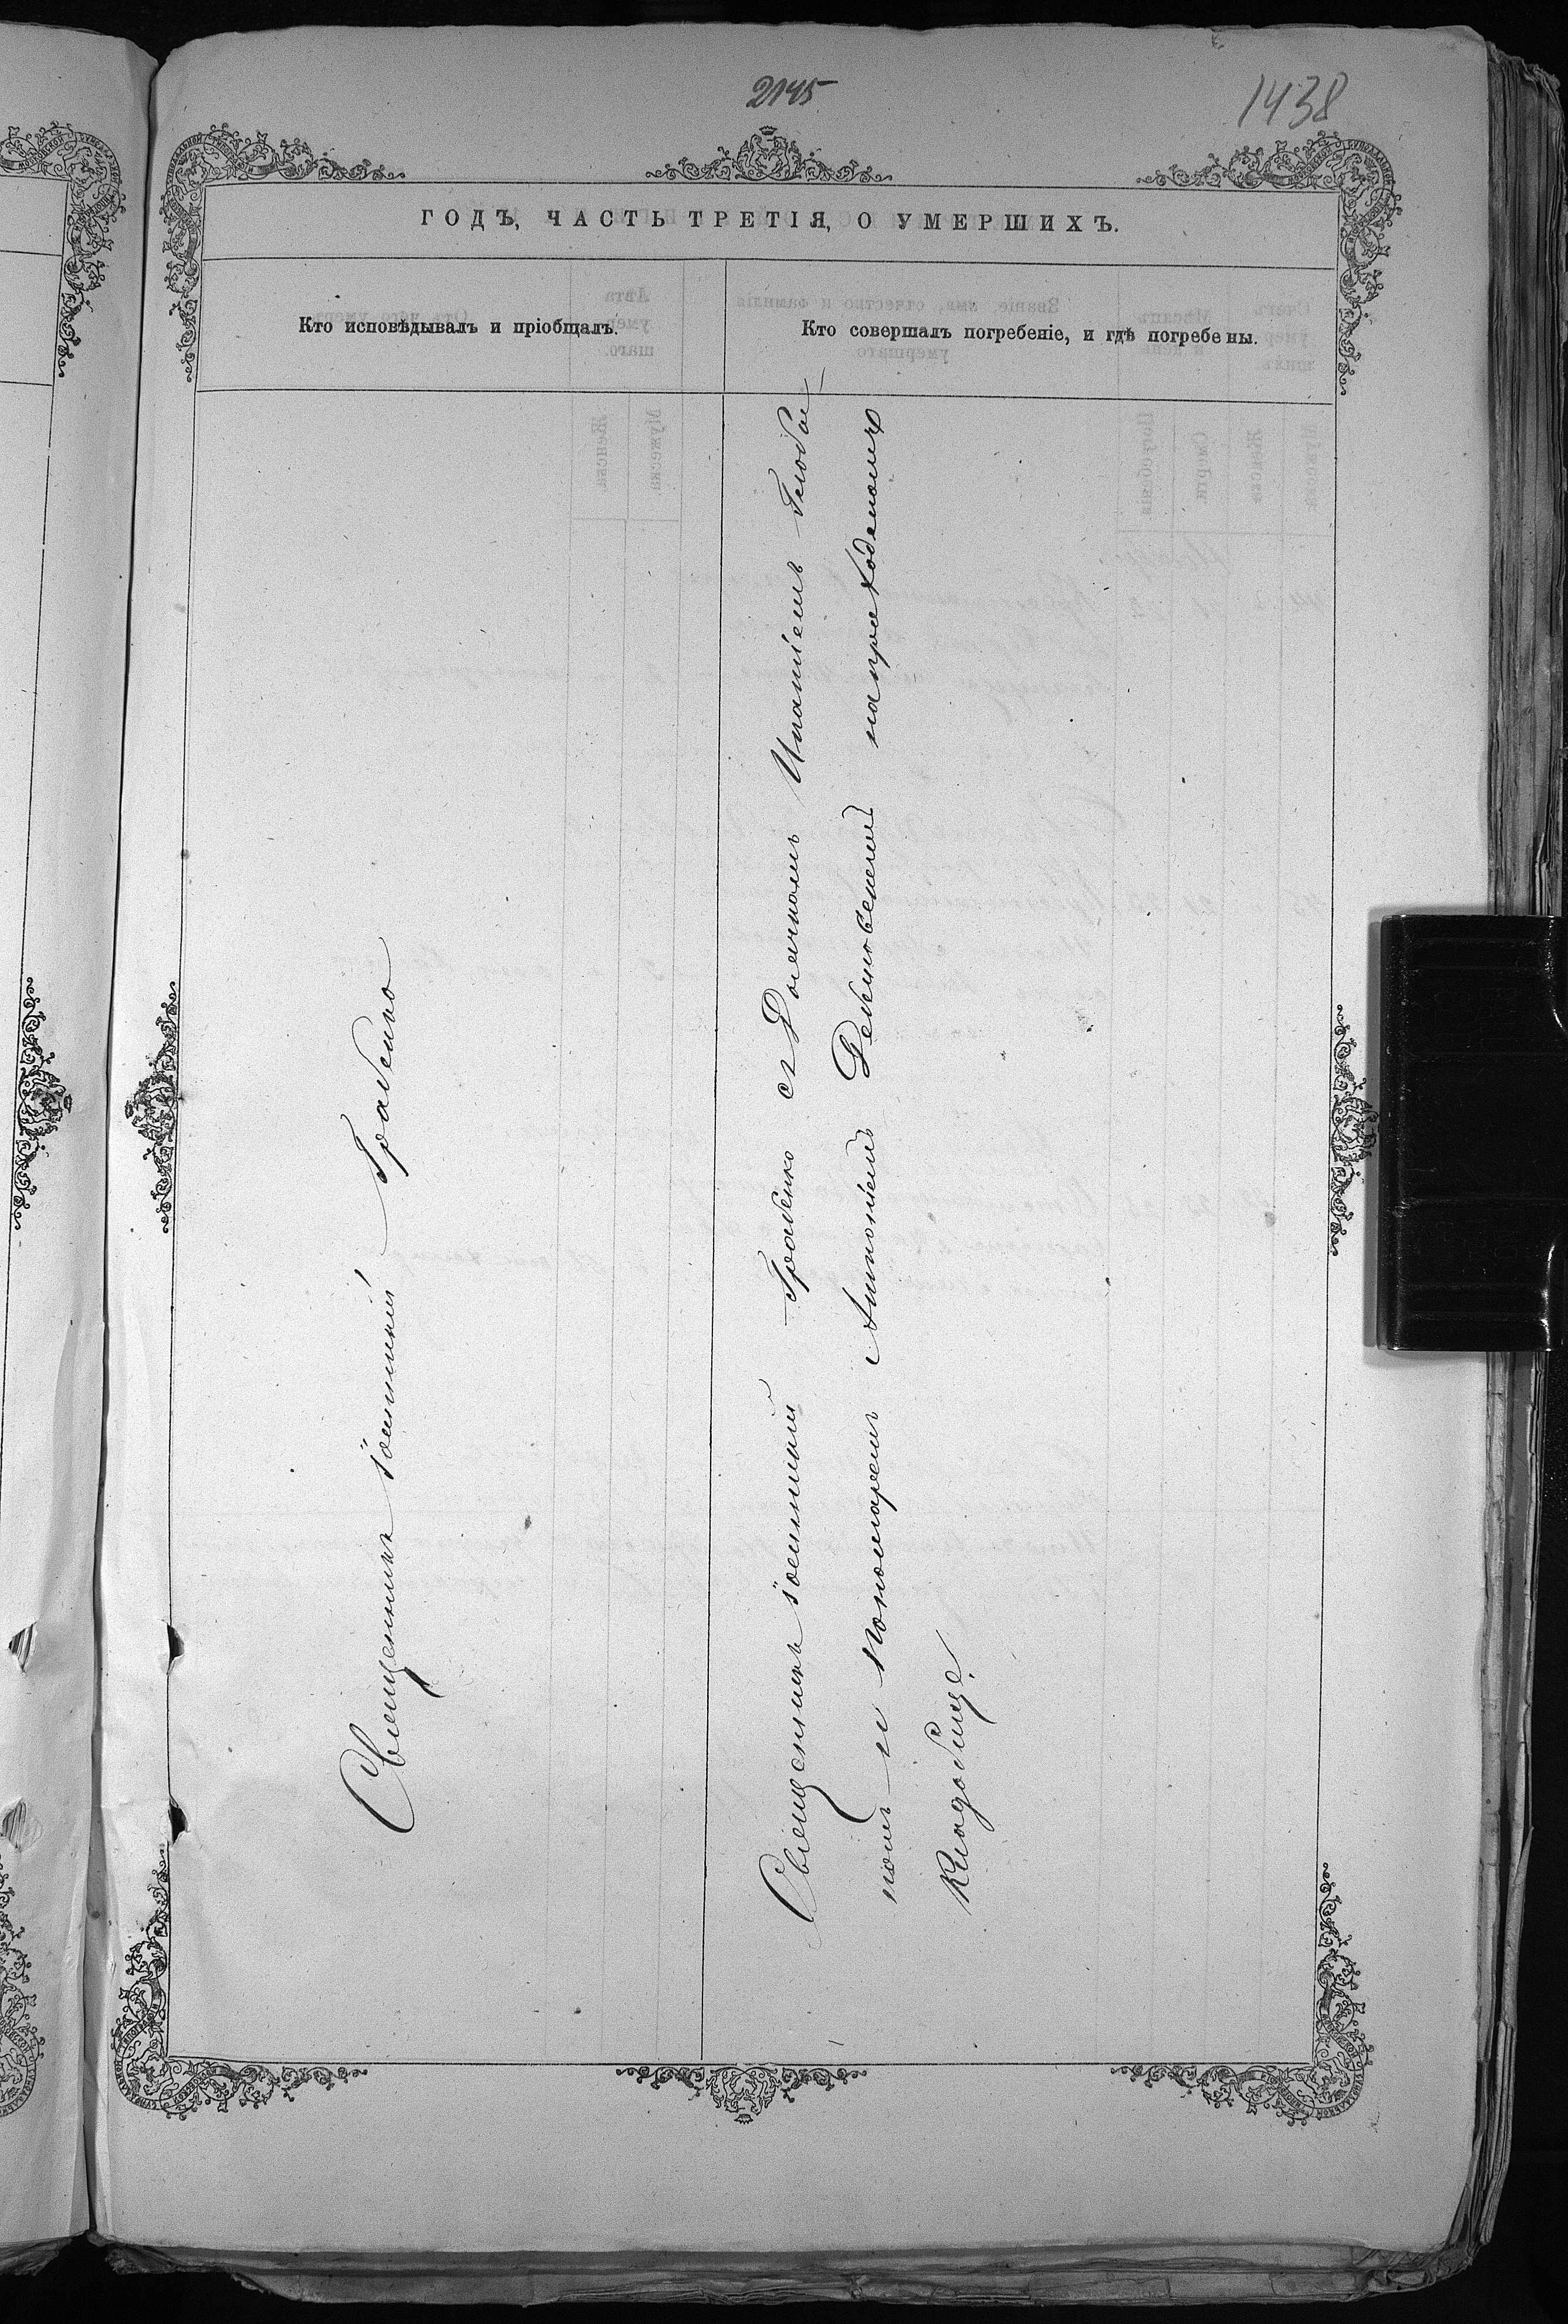 2145
1438
ГОДЪ, ЧАСТЬ ТРЕТІЯ, О УМЕРШИХЪ.
Кто исповѣдывалъ и пріобщалъ.
Кто совершалъ погребеніе, и гдѣ погребены.
Священникъ Іоанникій Грабенко
Священникъ Іоанникій Грабенко съ Дьячкомъ
номъ и Пономаремъ Антоніемъ на приходскомъ
Кладбищѣ.